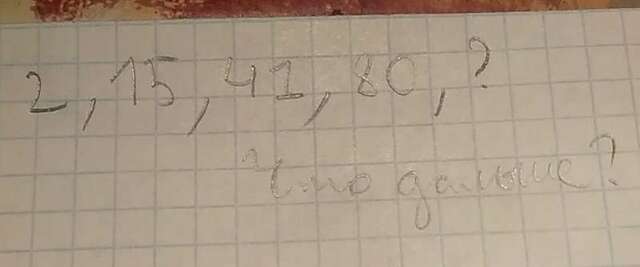 2, 15, 41, 80, ?
Что дальше?